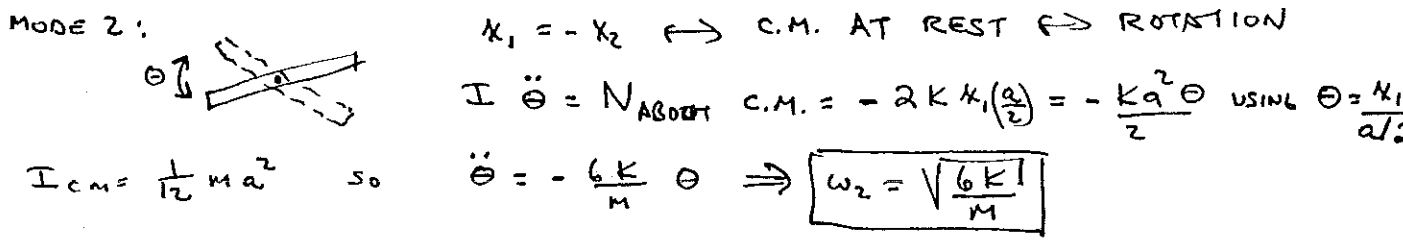 MODE 2: x₁ = -x₂ ↔ C.M. AT REST ↔ ROTATION
θ I θ̈ = N_ABOUT C.M. = -2Kx₁(a/2) = -Ka²θ/2 USING θ = x₁/a/2
I_CM = 1/12 Ma² SO θ̈ = -6K/M θ ⇒ ω₂ = √(6K/M)